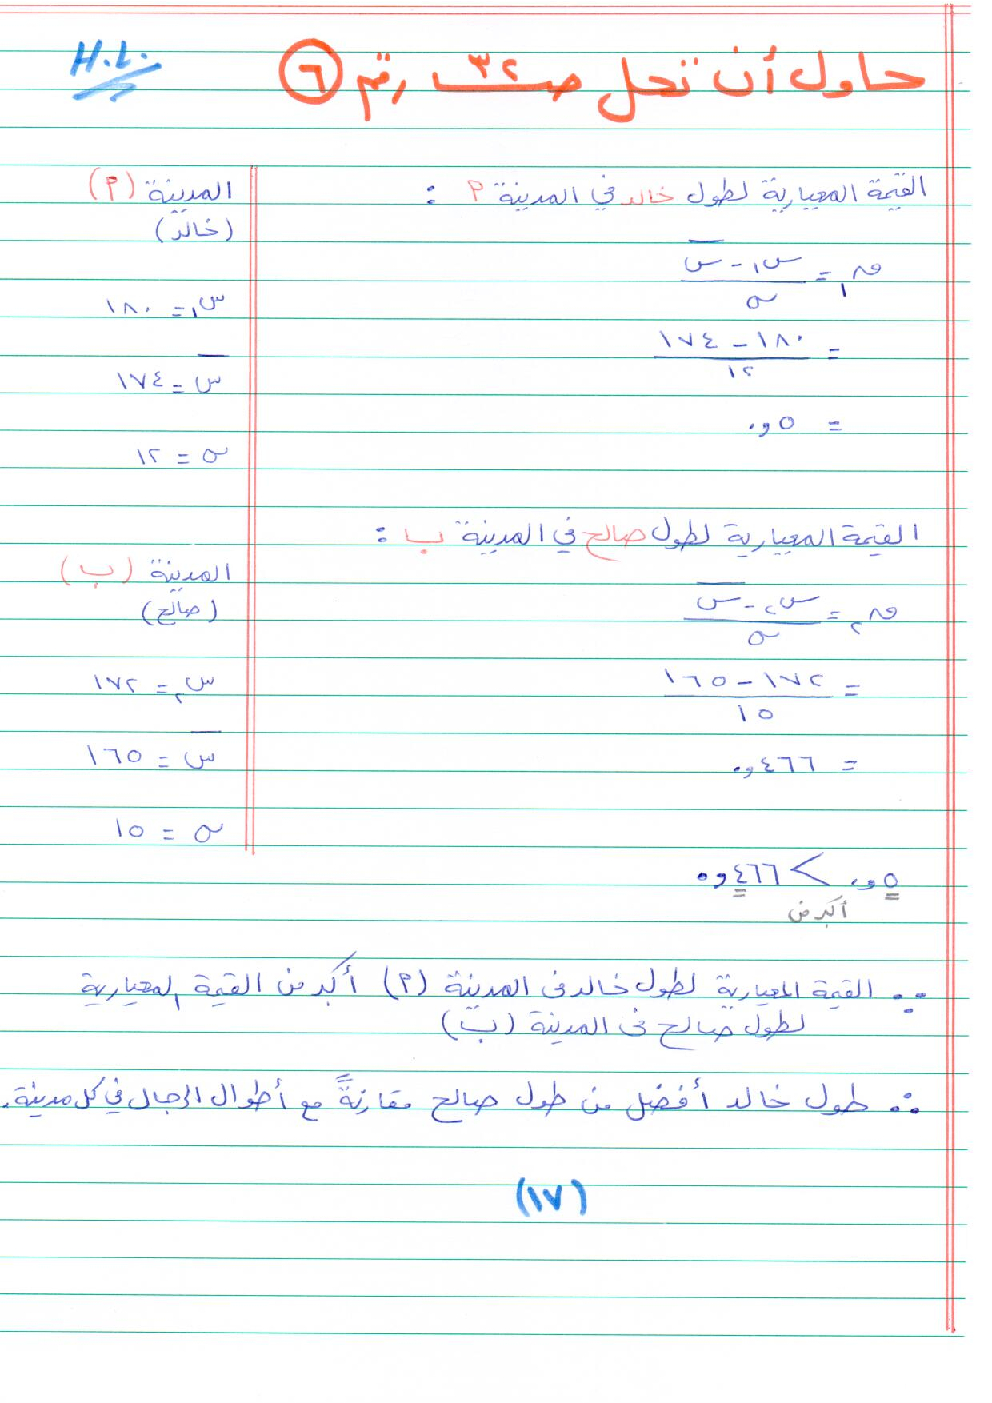 H.L.
حاول أن تحل صـ ٣٢ رقم ٦
القيمة المعيارية لطول خالد في المدينة ٢ :
ق١ = س١ - س̄
σ
= ١٨٠ - ١٧٤
١٢
= ٥و٠
المدينة (٢)
(خالد)
س١ = ١٨٠
س̄ = ١٧٤
σ = ١٢
القيمة المعيارية لطول صالح في المدينة ب :
ق٢ = س٢ - س̄
σ
= ١٧٢ - ١٦٥
١٥
= ٤٦٦و٠
المدينة (ب)
(صالح)
س٢ = ١٧٢
س̄ = ١٦٥
σ = ١٥
٥و٠ > ٤٦٦و٠
أكبر من
∵ القيمة المعيارية لطول خالد في المدينة (٢) أكبر من القيمة المعيارية
لطول صالح في المدينة (ب)
∴ طول خالد أفضل من طول صالح مقارنةً مع أطوال الرجال في كل مدينة.
(١٧)